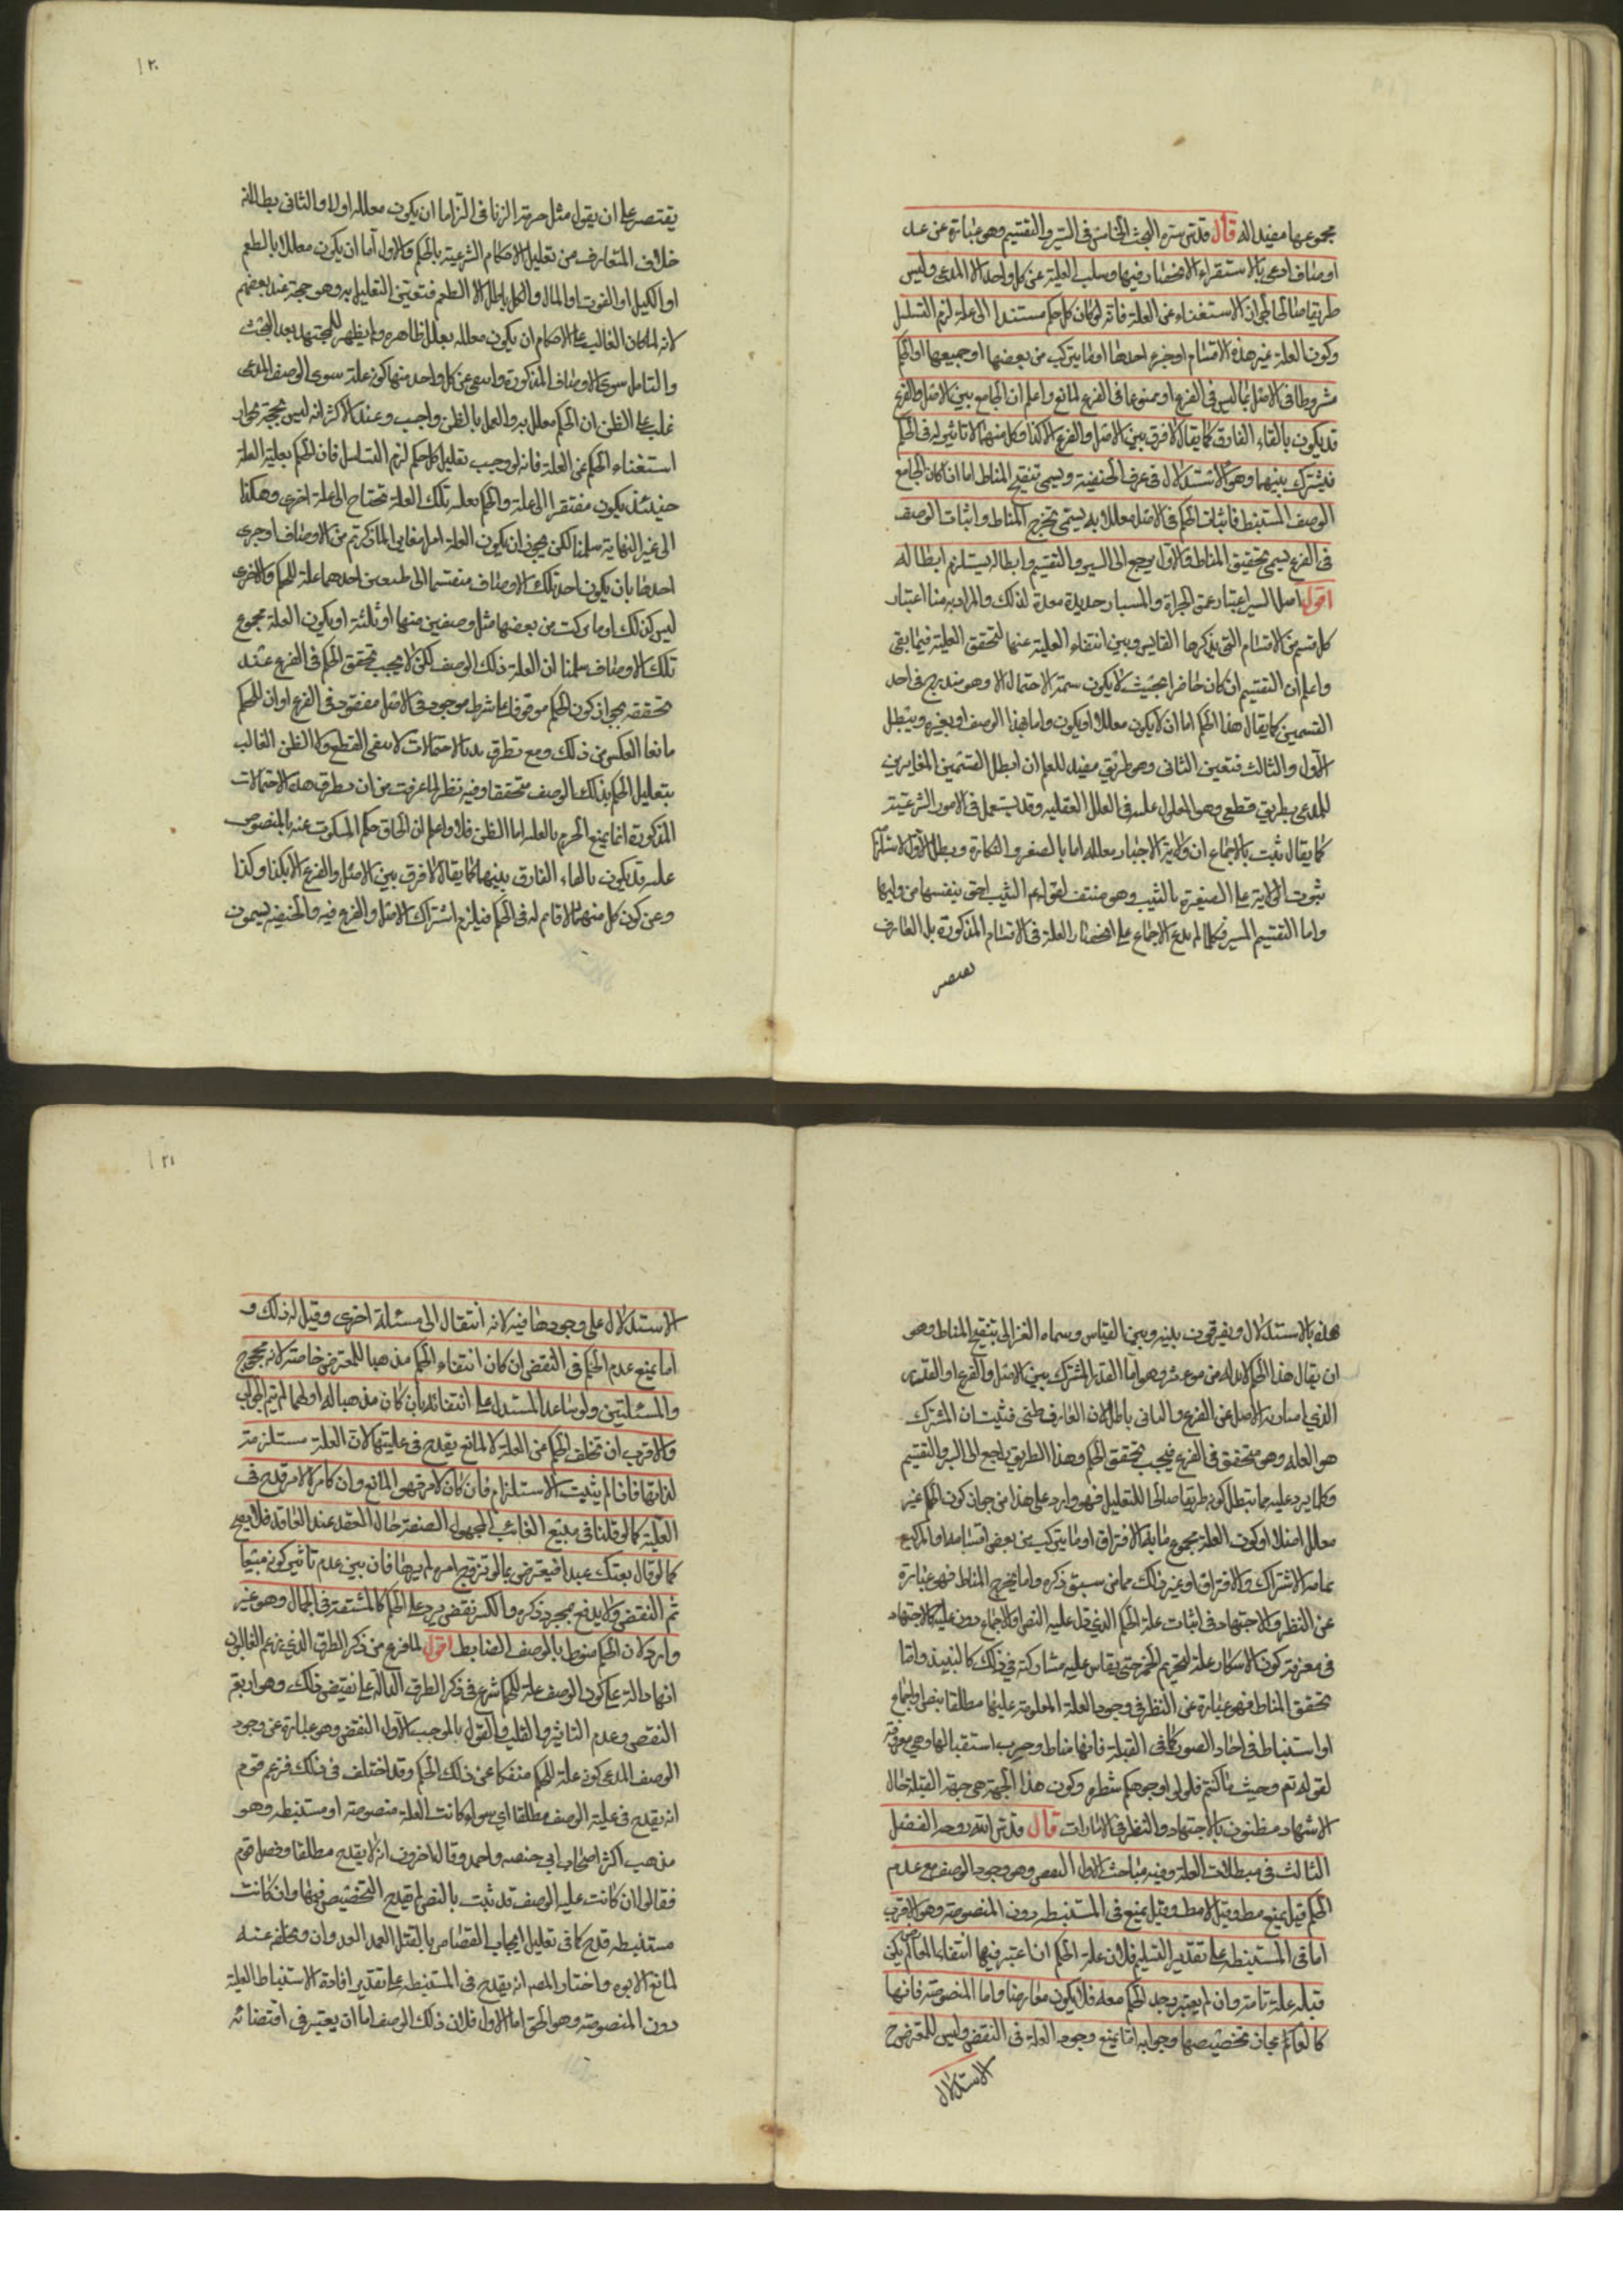 مجموعها مفيدا له قال قدس سره البحث الخامس فى السبر والتقسيم وهو عبارة عن عد
اوصاف ادعى بالاستقراء الانحصار فيها وسلب العلية عن كل واحد الا المدعى وليس
طريقا صالحا لجواز الاستغناء عن العلة فانه لو كان كل حكم مستندا الى علة لزم التسلسل
وكون العلة غير هذه الاقسام او جزء احدها او ما يتركب من بعضها او جميعها او الحكم
مشروطا فى الاصل بما ليس فى الفرع او ممنوعا فى الفرع لمانع واعلم ان الجامع بين الاصل والفرع
قد يكون بالقاء الفارق كما يقال لا فرق بين الاصل والفرع الا كذا وكل منهما لا تاثير له فى الحكم
فيشترك بينهما وهو الاستدلال فى عرف الحنفية ويسمى تنقيح المناط اما ان كان الجامع
الوصف المستنبط فاثبات الحكم فى الاصل معللا به يسمى تخريج المناط واثبات الوصف
فى الفرع يسمى تحقيق المناط والاول يرجع الى السبر والتقسيم وابطاله يستلزم ابطاله
اقول اصل السبر اعتبار عمق الجراة والمسبار حديدة معدة لذلك والمراد به هنا اعتبار
كل قسم من الاقسام التى يذكرها القايس وبين انتفاء العلية عنها لتحقق العلية فيما بقى
واعلم ان التقسيم ان كان حاضرا بحيث لا يكون سمة الاحتمال الا وهو مندرج فى احد
القسمين كما يقال هذا الحكم اما ان لا يكون معللا او يكون واما بهذا الوصف او بغيره ويبطل
الاول والثالث فتعين الثانى وهو طريق مفيد للعلم ان ابطل القسمين المغايرين
للمدعى بطريق قطعى وهو المعلول عليه فى العلل العقليه وقد يستعمل فى الامور الشرعية
كما يقال ثبت بالاجماع ان ولاية الاجبار معلله اما بالصغر والبكارة وبطل الاول لاستلزام
ثبوت الولاية على الصغيرة بالثيب وهو منتف لقوله عم الثيب احق بنفسها من وليها
واما التقسيم المسير فكما لم يدع الاجماع على انحصار العلة فى الاقسام المذكورة بل العارف
يقتصر
١٢٠
يقتصر على ان يقول مثل حرمة الربا فى البر اما ان يكون معلله اولا والثانى بطلانه
خلاف المتعارف من تعليل الاحكام الشرعية بالحكم والاول اما ان يكون معللا بالطعم
او الكيل او القوت او المال والكل باطل الا الطعم فتعين التعليل به وهو حجة عند بعضهم
لانه لما كان الغالب على الاحكام ان يكون معلله بعلل ظاهره ولم يظهر للمجتهد بعد البحث
والتامل سوى الاوصاف المذكورة وانتفى عن كل واحد منها كونه علة سوى الوصف المدعى
غلب على الظن ان الحكم معلل به والعمل بالظن واجب وعند الاكثر انه ليس بحجة لجواز
استغناء الحكم عن العلة فانه لو وجب تعليل كل حكم لزم التسلسل فان الحكم بعلية العلة
حينئذ يكون مفتقرا الى علة والحكم بعليه تلك العلة تحتاج الى علة اخرى وهكذا
الى غير النهاية سلمنا لكن يجوز ان يكون العلة امرا مغايرا لما ذكرتم من الاوصاف او جزء
احدها بان يكون احد تلك الاوصاف منقسما الى طبعين احدهما علة للحكم والاخرى
ليس كذلك او ما تركبت من بعضها مثل وصفين منها او ثلثة او يكون العلة مجموع
تلك الاوصاف سلمنا ان العلة ذلك الوصف لكن لا يجب تحقق الحكم فى الفرع عند
تحققه بجواز كون الحكم موقوفا على شرط موجود فى الاصل مفقود فى الفرع او ان للحكم
مانعا العكس من ذلك ومع تطرق هذه الاحتمالات لا يبقى القطع ولا الظن الغالب
بتعليل الحكم بذلك الوصف متحققا وفيه نظر لما عرفت من ان تطرق هذه الاحتمالات
المذكورة انما يمنع الجزم بالعليه اما الظن فلا واعلم ان الحاق حكم المسكوت عنه بالمنصوص
عليه قد يكون بالغاء الفارق بينهما كما يقال لا فرق بين الاصل والفرع الا بكذا وكذا
وعن كون كل منهما لا تاثير له فى الحكم فيلزم اشتراك الاصل والفرع فيه والحنفيه يسمون
هذه بالاستدلال ويفرقون بينه وبين القياس وسماه الغزالى بتنقيح المناط وهو
ان يقال هذا الحكم لا بد له من موثر وهو اما القدر المشترك بين الاصل والفرع او القدر
الذى امتاز به الاصل عن الفرع والثانى باطل لان الفارق ملغى فثبت ان المشترك
هو العله وهو متحقق فى الفرع فيجب تحقق الحكم وهذا الطريق راجع الى السبر والتقسيم
وكلما يرد عليه مما يبطل كونه طريقا صالحا للتعليل فهو وارد على هذا من جواز كون الحكم غير
معلل اصلا او كون العلة مجموع ما به الافتراق او ما يتركب من بعض اقسامه او
ما به الاشتراك والافتراق او غير ذلك مما من سبق ذكره واما تخريج المناط فهو عبارة
عن النظر والاجتهاد فى اثبات علة الحكم الذى دل عليه النص والاجماع دون عليته كالاجتهاد
فى معرفة كون الاسكار علة لتحريم الخمر حتى يقاس عليه مشاركه فى ذلك كالنبيذ واما
تحقق المناط فهو عبارة عن النظر فى وجود العلة المعلومة عليتها مطلقا بنص او اجماع
او استنباط فى احاد الصور كما فى القبلة فانها مناط وجوب استقبالها وهى معروفة
لقوله تعم وحيث ما كنتم فولوا وجوهكم شطره وكون هذا الجهة هى جهة القبلة حال
الاشتباه مظنون بالاجتهاد والنظر فى الامارات قال قدس الله روحه الفصل
الثالث فى مبطلات العلة وفيه مباحث الاول النقض وهو وجود الوصف مع عدم
الحكم قيل يمنع مط وقيل لا مط وقيل يمنع فى المستنبطه دون المنصوصة وهو الاقرب
اما فى المستنبطه على تقدير التسليم فلان علة الحكم ان اعتبر فيها انتفاء المعارض لم يكن
قبله علة تامة وان لم يعتبر وجد الحكم معه فلا يكون معارضا واما المنصوصة فانها
كالعام جاز تخصيصها وجوابه اما يمنع وجود العلة فى النقض وليس للمعترض ح
الاستدلال
١٢١
الاستدلال على وجودها فيه لانه انتقال الى مسئلة اخرى وقيل له ذلك و
اما يمنع عدم الحكم فى النقض ان كان انتفاء الحكم مذهبا للمعترض خاصة لانه محجوج
والمسئلتين ولو ساعد المستدل على انتفائه بان كان مذهبا له او لهما لم يتم الجواب
والاقرب ان تخلف الحكم عن العلة لا لمانع يقدح فى عليتها لان العلة مستلزمة
لذاتها فان لم يثبت الاستلزام فان كان لامر فهو المانع وان كان لا لامر قدح فى
العلية كما لو قلنا فى بيع الغائب مجهول الصفة حال العقد عند العاقد فلا يصح
كما لو قال بعتك عبدا فيعترض بما لو تزوج امرءة لم يرها فان بين عدم تاثير كونه مبيعا
تم النقض ولا يندفع بمجرد ذكره والكسر نقض يرد على الحكم كالمشقة فى الحمال وهو غير
وارد لان الحكم منوط بالوصف الضابط اقول لما فرغ من ذكر الطرق الذى يزعم القائلون
انها دالة على كون الوصف علة للحكم شرع فى ذكر الطرق الدالة على نقيض ذلك وهو اربعة
النقض وعدم التاثير والقلب والقول بالموجب الاول النقض وهو عبارة عن وجود
الوصف المدعى كونه علة للحكم منفكا عن ذلك الحكم وقد اختلف فى ذلك فزعم قوم
انه يقدح فى علية الوصف مطلقا اى سواء كانت العلة منصوصة او مستنبطه وهو
مذهب اكثر اصحاب ابى حنيفه واحمد وقال اخرون انه لا يقدح مطلقا وفصل قوم
فقالوا ان كانت علية الوصف قد ثبت بالنص لم يقدح التخصيص فيها وان كانت
مستنبطه قدح كما فى تعليل ايجاب القصاص بالقتل العمد العدوان وتخلفه عنه
لمانع الابوه واختار المصه انه يقدح فى المستنبطه على تقدير افادة الاستنباط العلية
دون المنصوصة وهو الحق اما الاول فلان ذلك الوصف اما ان يعتبر فى اقتضائه